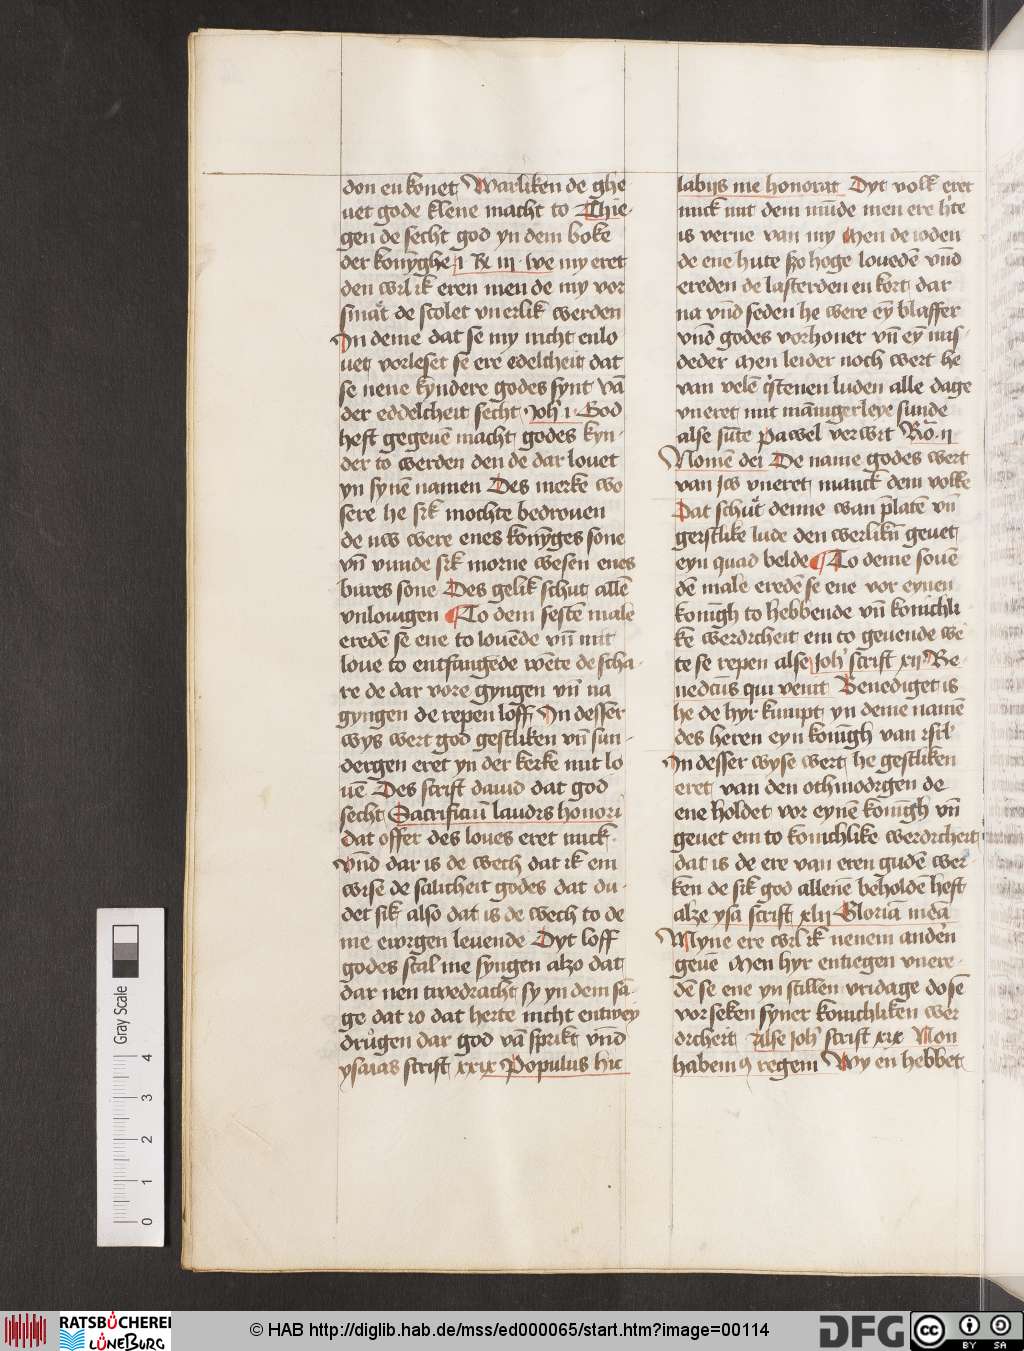 don en konet Warliken de ghe
uet gode klene macht to Thie
gen de secht god yn dem boke
der konyghe i R iii we my eret
den wil ik eren men de my vor
smat de scolet vnerlik werden
In deme dat se my nicht enlo
uet vorleset se ere edelcheit dat
se nene kyndere godes synt vā
der eddelcheit secht Joh' i God
heft gegeuē macht godes kyn
der to werden den de dar louet
yn synē namen Des merke wo
sere he sik mochte bedrouen
de nw were enes konyges sone
vn̄ vunde sik morne wesen enes
bures sone Des gelik schut allē
vnlouigen ¶ To dem sestē male
eredē se ene to louēde vn̄ mit
loue to entfangēde wēte de scha
re de dar vore gyngen vn̄ na
gyngen de repen loff In desser
wys wert god gestliken vn̄ sun
dergen eret yn der kerke mit lo
uē Des scrift dauid dat god
secht Sacrificiū laudis honori
dat offer des loues eret mick
vn̄d dar is de wech dat ik em
wise de salicheit godes dat du
det sik also dat is de wech to de
me ewigen leuende Dyt loff
godes scal me syngen alzo dat
dar nen twedracht sy yn dem sā
ge dat io dat herte nicht entwey
drugen dar god vā sprikt vn̄d
ysaias scrift xxix Populus hic
labijs me honorat Dyt volk eret
mick mit dem mūde men ere h'te
is verne van my Men de ioden
de ene hute szo hoge louedē vn̄d
ereden de lasterden en kort dar
na vn̄d seden he were eȳ blaffer
vn̄d godes vorhoner vn̄ eȳ mis
deder Men leider noch wert he
van velē cristenen luden alle dage
vneret mit mānigerleye sunde
alse sūte pawel verwit Ro. ii
Nomē dei De name godes wert
van jw vneret manck dem volke
Dat schut denne wan p̄latē vn̄
gerstlike lude den werlikn̄ geuet
eyn quad belde ¶ To deme souē
dē male eredē se ene vor eynen
konigh to hebbende vn̄ konichli
ke werdicheit em to geuende wē
te se repen alse Joh' scrift xii Be
nedcūs qui venit Benediget is
he de hyr kumpt yn deme namē
des heren eyn konigh van isrl'
In desser wyse wert he gestliken
eret van den othmodigen de
ene holdet vor eynē konigh vn̄
geuet em to konichlike werdicheit
dat is de ere van eren gudē wer
ken de sik god allenē beholdē heft
alze ysa scrift xlii Gloriā meā
Myne ere wil ik nenem anden
geuē Men hyr entiegen vnere
dē se ene yn stillen vridage do sē
vorseken syner konichliken wer
dicheit Alse Joh' scrift xix Non
habem9 regem Wy en hebbet
Gray Scale
4
3
2
1
0
RATSBÜCHEREI
LÜNEBURG
© HAB http://diglib.hab.de/mss/ed000065/start.htm?image=00114
DFG
cc
BY SA